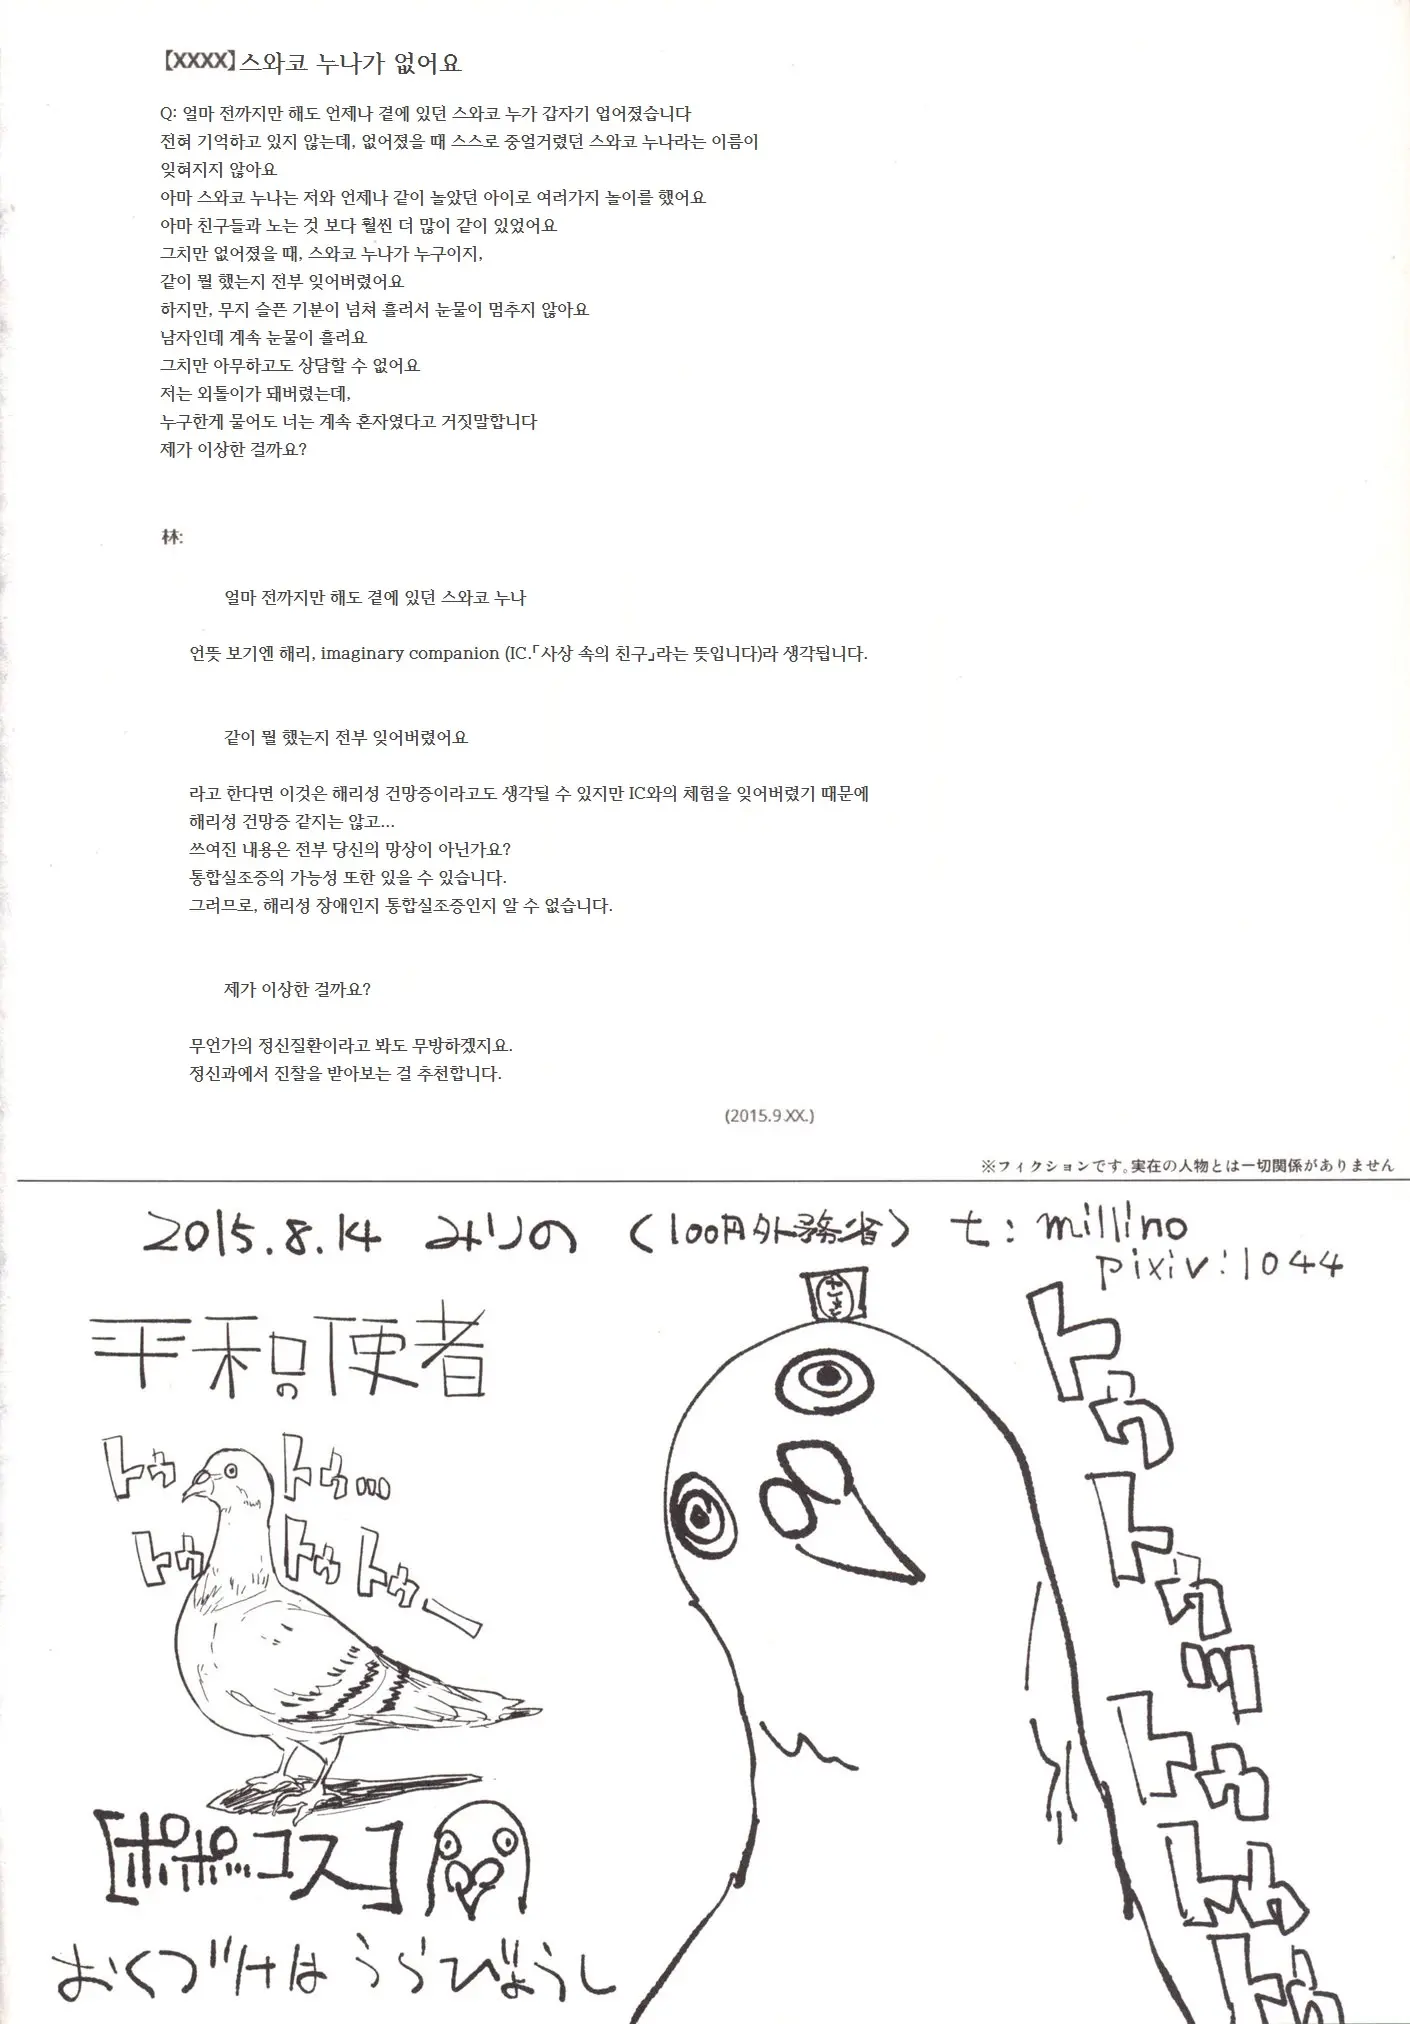 【XXXX】스와코 누나가 없어요
Q: 얼마 전까지만 해도 언제나 곁에 있던 스와코 누가 갑자기 업어졌습니다
전혀 기억하고 있지 않는데, 없어졌을 때 스스로 중얼거렸던 스와코 누나라는 이름이
잊혀지지 않아요
아마 스와코 누나는 저와 언제나 같이 놀았던 아이로 여러가지 놀이를 했어요
아마 친구들과 노는 것 보다 훨씬 더 많이 같이 있었어요
그치만 없어졌을 때, 스와코 누나가 누구이지,
같이 뭘 했는지 전부 잊어버렸어요
하지만, 무지 슬픈 기분이 넘쳐 흘러서 눈물이 멈추지 않아요
남자인데 계속 눈물이 흘러요
그치만 아무하고도 상담할 수 없어요
저는 외톨이가 돼버렸는데,
누구한게 물어도 너는 계속 혼자였다고 거짓말합니다
제가 이상한 걸까요?
林:
얼마 전까지만 해도 곁에 있던 스와코 누나
언뜻 보기엔 해리, imaginary companion (IC.「사상 속의 친구」라는 뜻입니다)라 생각됩니다.
같이 뭘 했는지 전부 잊어버렸어요
라고 한다면 이것은 해리성 건망증이라고도 생각될 수 있지만 IC와의 체험을 잊어버렸기 때문에
해리성 건망증 같지는 않고...
쓰여진 내용은 전부 당신의 망상이 아닌가요?
통합실조증의 가능성 또한 있을 수 있습니다.
그러므로, 해리성 장애인지 통합실조증인지 알 수 없습니다.
제가 이상한 걸까요?
무언가의 정신질환이라고 봐도 무방하겠지요.
정신과에서 진찰을 받아보는 걸 추천합니다.
(2015.9.XX.)
※フィクションです。実在の人物とは一切関係がありません
2015.8.14 みりの 〈100円外務省〉 t: millino
pixiv:1044
平和の使者
トゥ トゥ…
トゥ トゥ トゥー
トゥ
トゥ
ッ
トゥ
トゥ
トゥ
[ポポッコス]
おくづけは うらびょうし